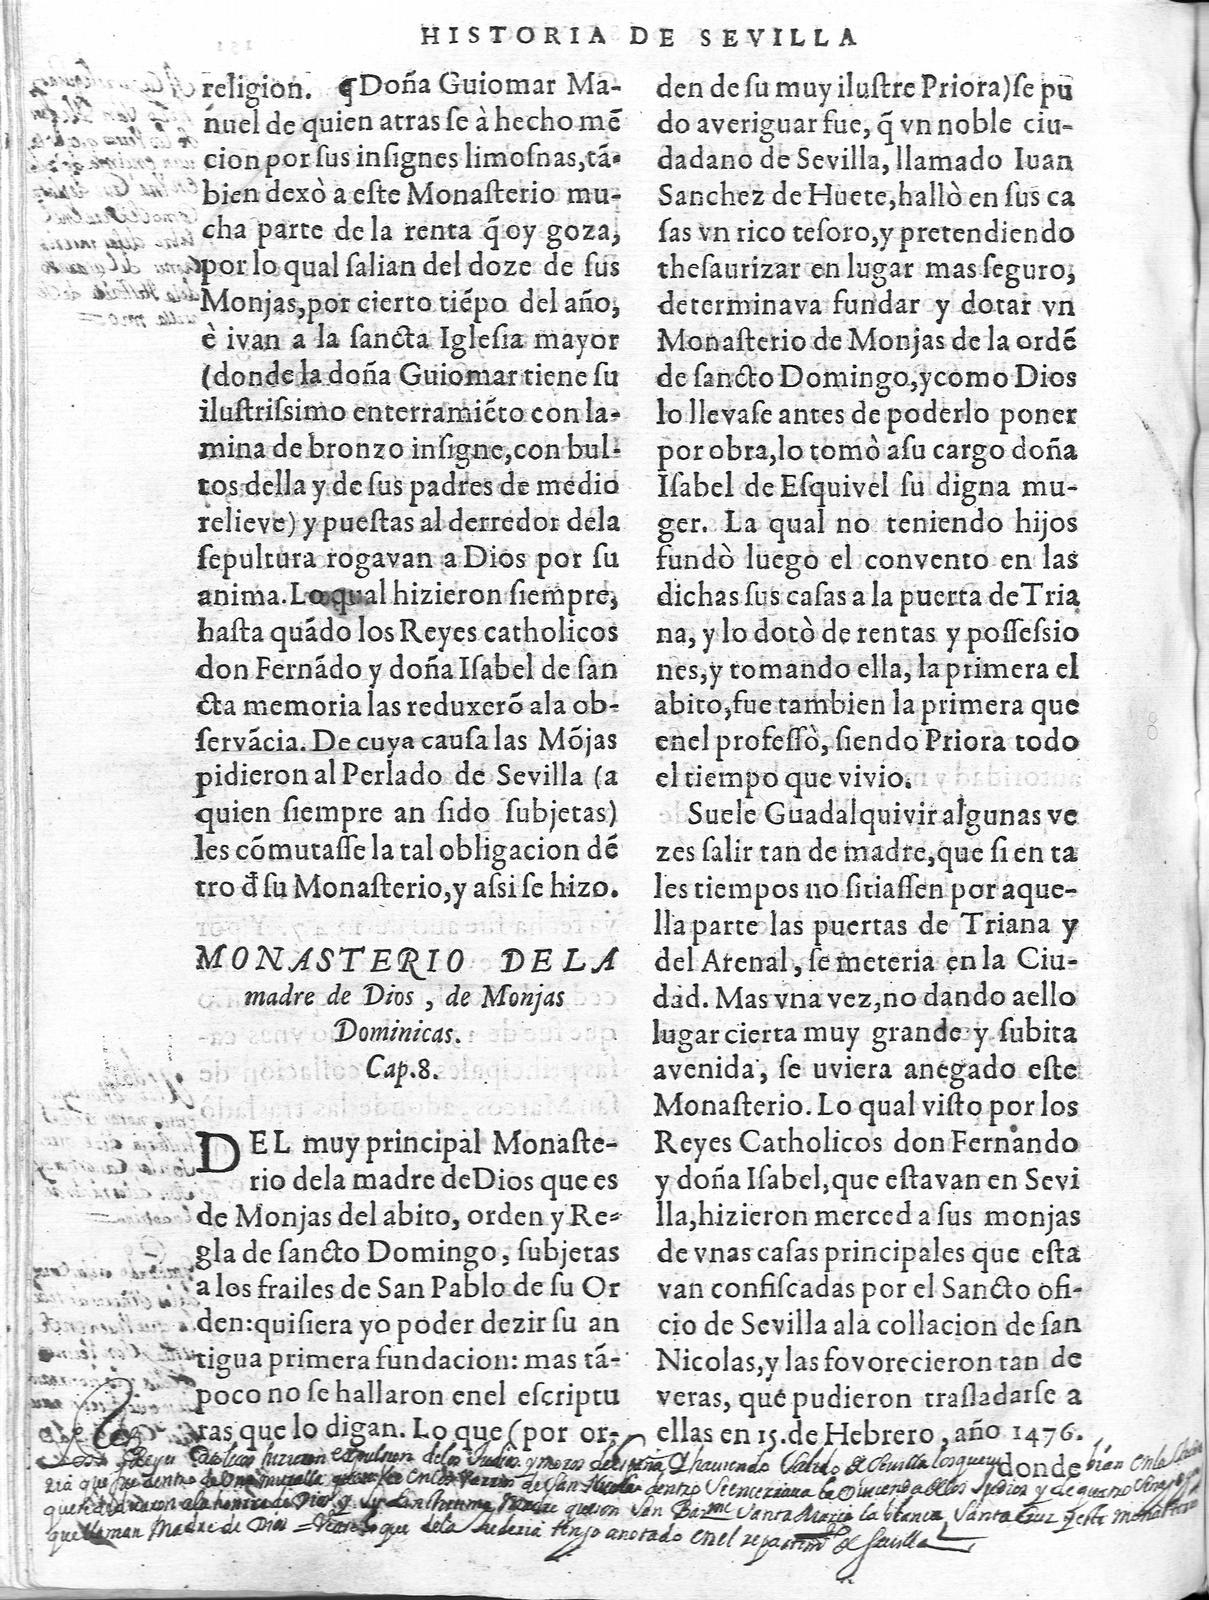 HISTORIA DE SEVILLA
religion. ¶Doña Guiomar Ma-
nuel de quien atras ſe à hecho mē
cion por ſus inſignes limoſnas, tā-
bien dexò a eſte Monaſterio mu-
cha parte de la renta q̃ oy goza,
por lo qual ſalian del doze de ſus
Monjas, por cierto tiēpo del año,
è ivan a la ſancta Igleſia mayor
(donde la doña Guiomar tiene ſu
iluſtriſsimo enterramiēto con la-
mina de bronzo inſigne, con bul-
tos della y de ſus padres de medio
relieve) y pueſtas al derredor dela
ſepultura rogavan a Dios por ſu
anima. Lo qual hizieron ſiempre,
haſta quādo los Reyes catholicos
don Fernādo y doña Iſabel de ſan
cta memoria las reduxerō ala ob-
ſervācia. De cuya cauſa las Mōjas
pidieron al Perlado de Sevilla (a
quien ſiempre an ſido ſubjetas)
les cōmutaſſe la tal obligacion dē
tro đ ſu Monaſterio, y aſsi ſe hizo.
MONASTERIO DE LA
madre de Dios, de Monjas
Dominicas.
Cap. 8.
DEL muy principal Monaſte-
rio dela madre de Dios que es
de Monjas del abito, orden y Re-
gla de ſancto Domingo, ſubjetas
a los frailes de San Pablo de ſu Or
den: quiſiera yo poder dezir ſu an
tigua primera fundacion: mas tā-
poco no ſe hallaron enel eſcriptu
ras que lo digan. Lo que (por or-
den de ſu muy iluſtre Priora) ſe pu
do averiguar fue, q̃ vn noble ciu-
dadano de Sevilla, llamado Iuan
Sanchez de Huete, hallò en ſus ca
ſas vn rico teſoro, y pretendiendo
theſaurizar en lugar mas ſeguro,
determinava fundar y dotar vn
Monaſterio de Monjas de la ordē
de ſancto Domingo, y como Dios
lo llevaſe antes de poderlo poner
por obra, lo tomò aſu cargo doña
Iſabel de Eſquivel ſu digna mu-
ger. La qual no teniendo hijos
fundò luego el convento en las
dichas ſus caſas a la puerta de Tria
na, y lo dotò de rentas y poſſeſsio
nes, y tomando ella, la primera el
abito, fue tambien la primera que
enel profeſſò, ſiendo Priora todo
el tiempo que vivio.
Suele Guadalquivir algunas ve
zes ſalir tan de madre, que ſi en ta
les tiempos no ſitiaſſen por aque-
lla parte las puertas de Triana y
del Arenal, ſe meteria en la Ciu-
dad. Mas vna vez, no dando aello
lugar cierta muy grande y ſubita
avenida, ſe uviera anegado eſte
Monaſterio. Lo qual viſto por los
Reyes Catholicos don Fernando
y doña Iſabel, que eſtavan en Sevi
lla, hizieron merced a ſus monjas
de vnas caſas principales que eſta
van confiſcadas por el Sancto ofi-
cio de Sevilla ala collacion de ſan
Nicolas, y las favorecieron tan de
veras, que pudieron traſladarſe a
ellas en 15. de Hebrero, año 1476.
donde
que llaman Madre de Dios = Vease lo que dela Juderia tengo anotado en el repartimº de Sevilla